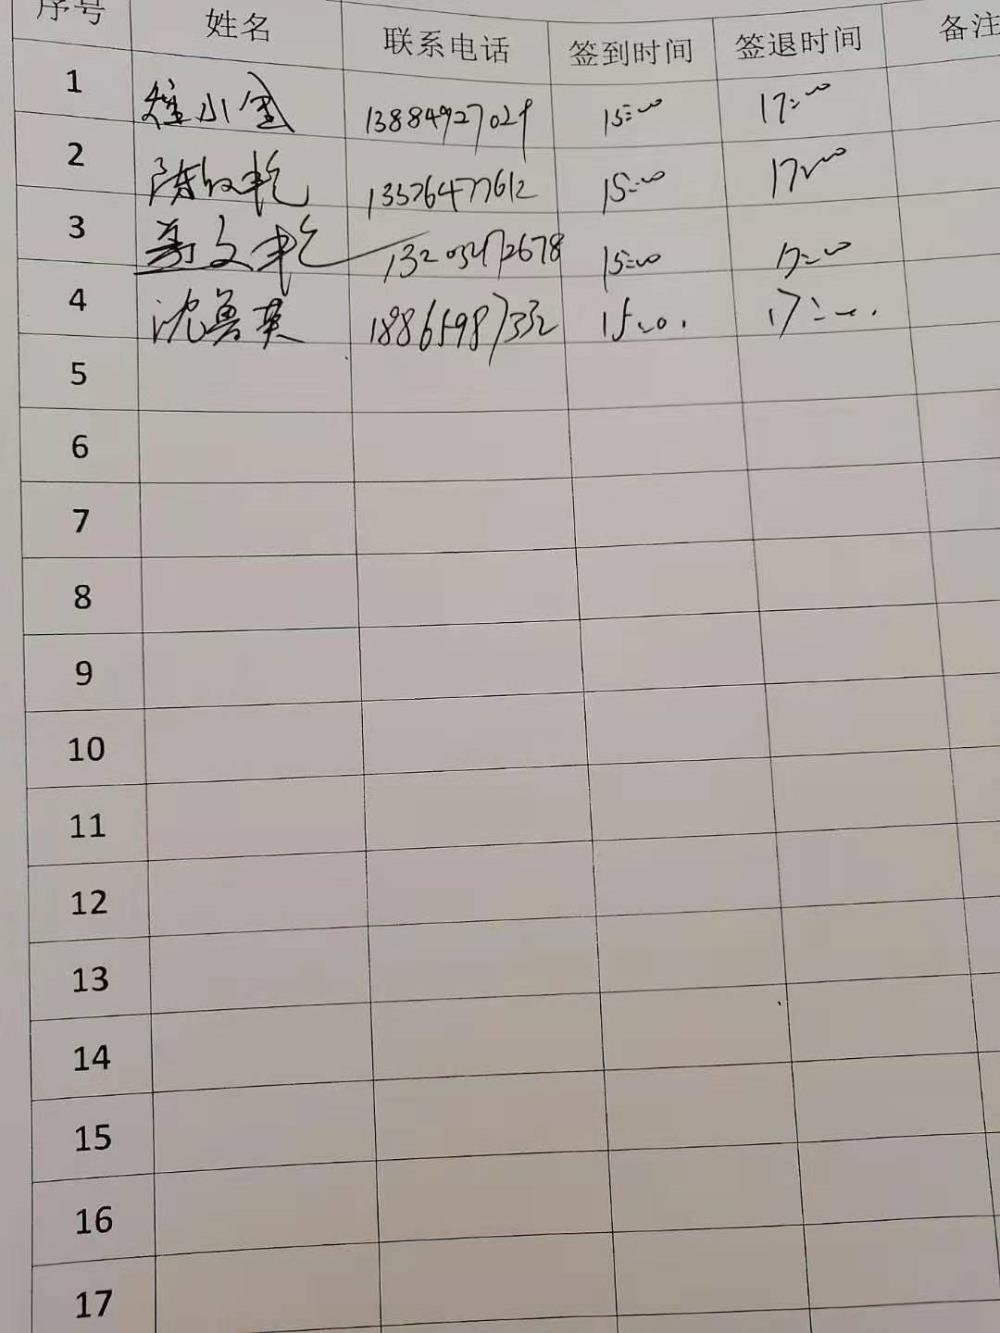 序号 姓名 联系电话 签到时间 签退时间 备注
1 小 13884927029 15:00 17:00
2 陈 乾 13376477612 15:00 17:00
3 文乾 15:00 17:00
4 沈曼英 18865987332 15:00. 17:00.
5
6
7
8
9
10
11
12
13
14
15
16
17